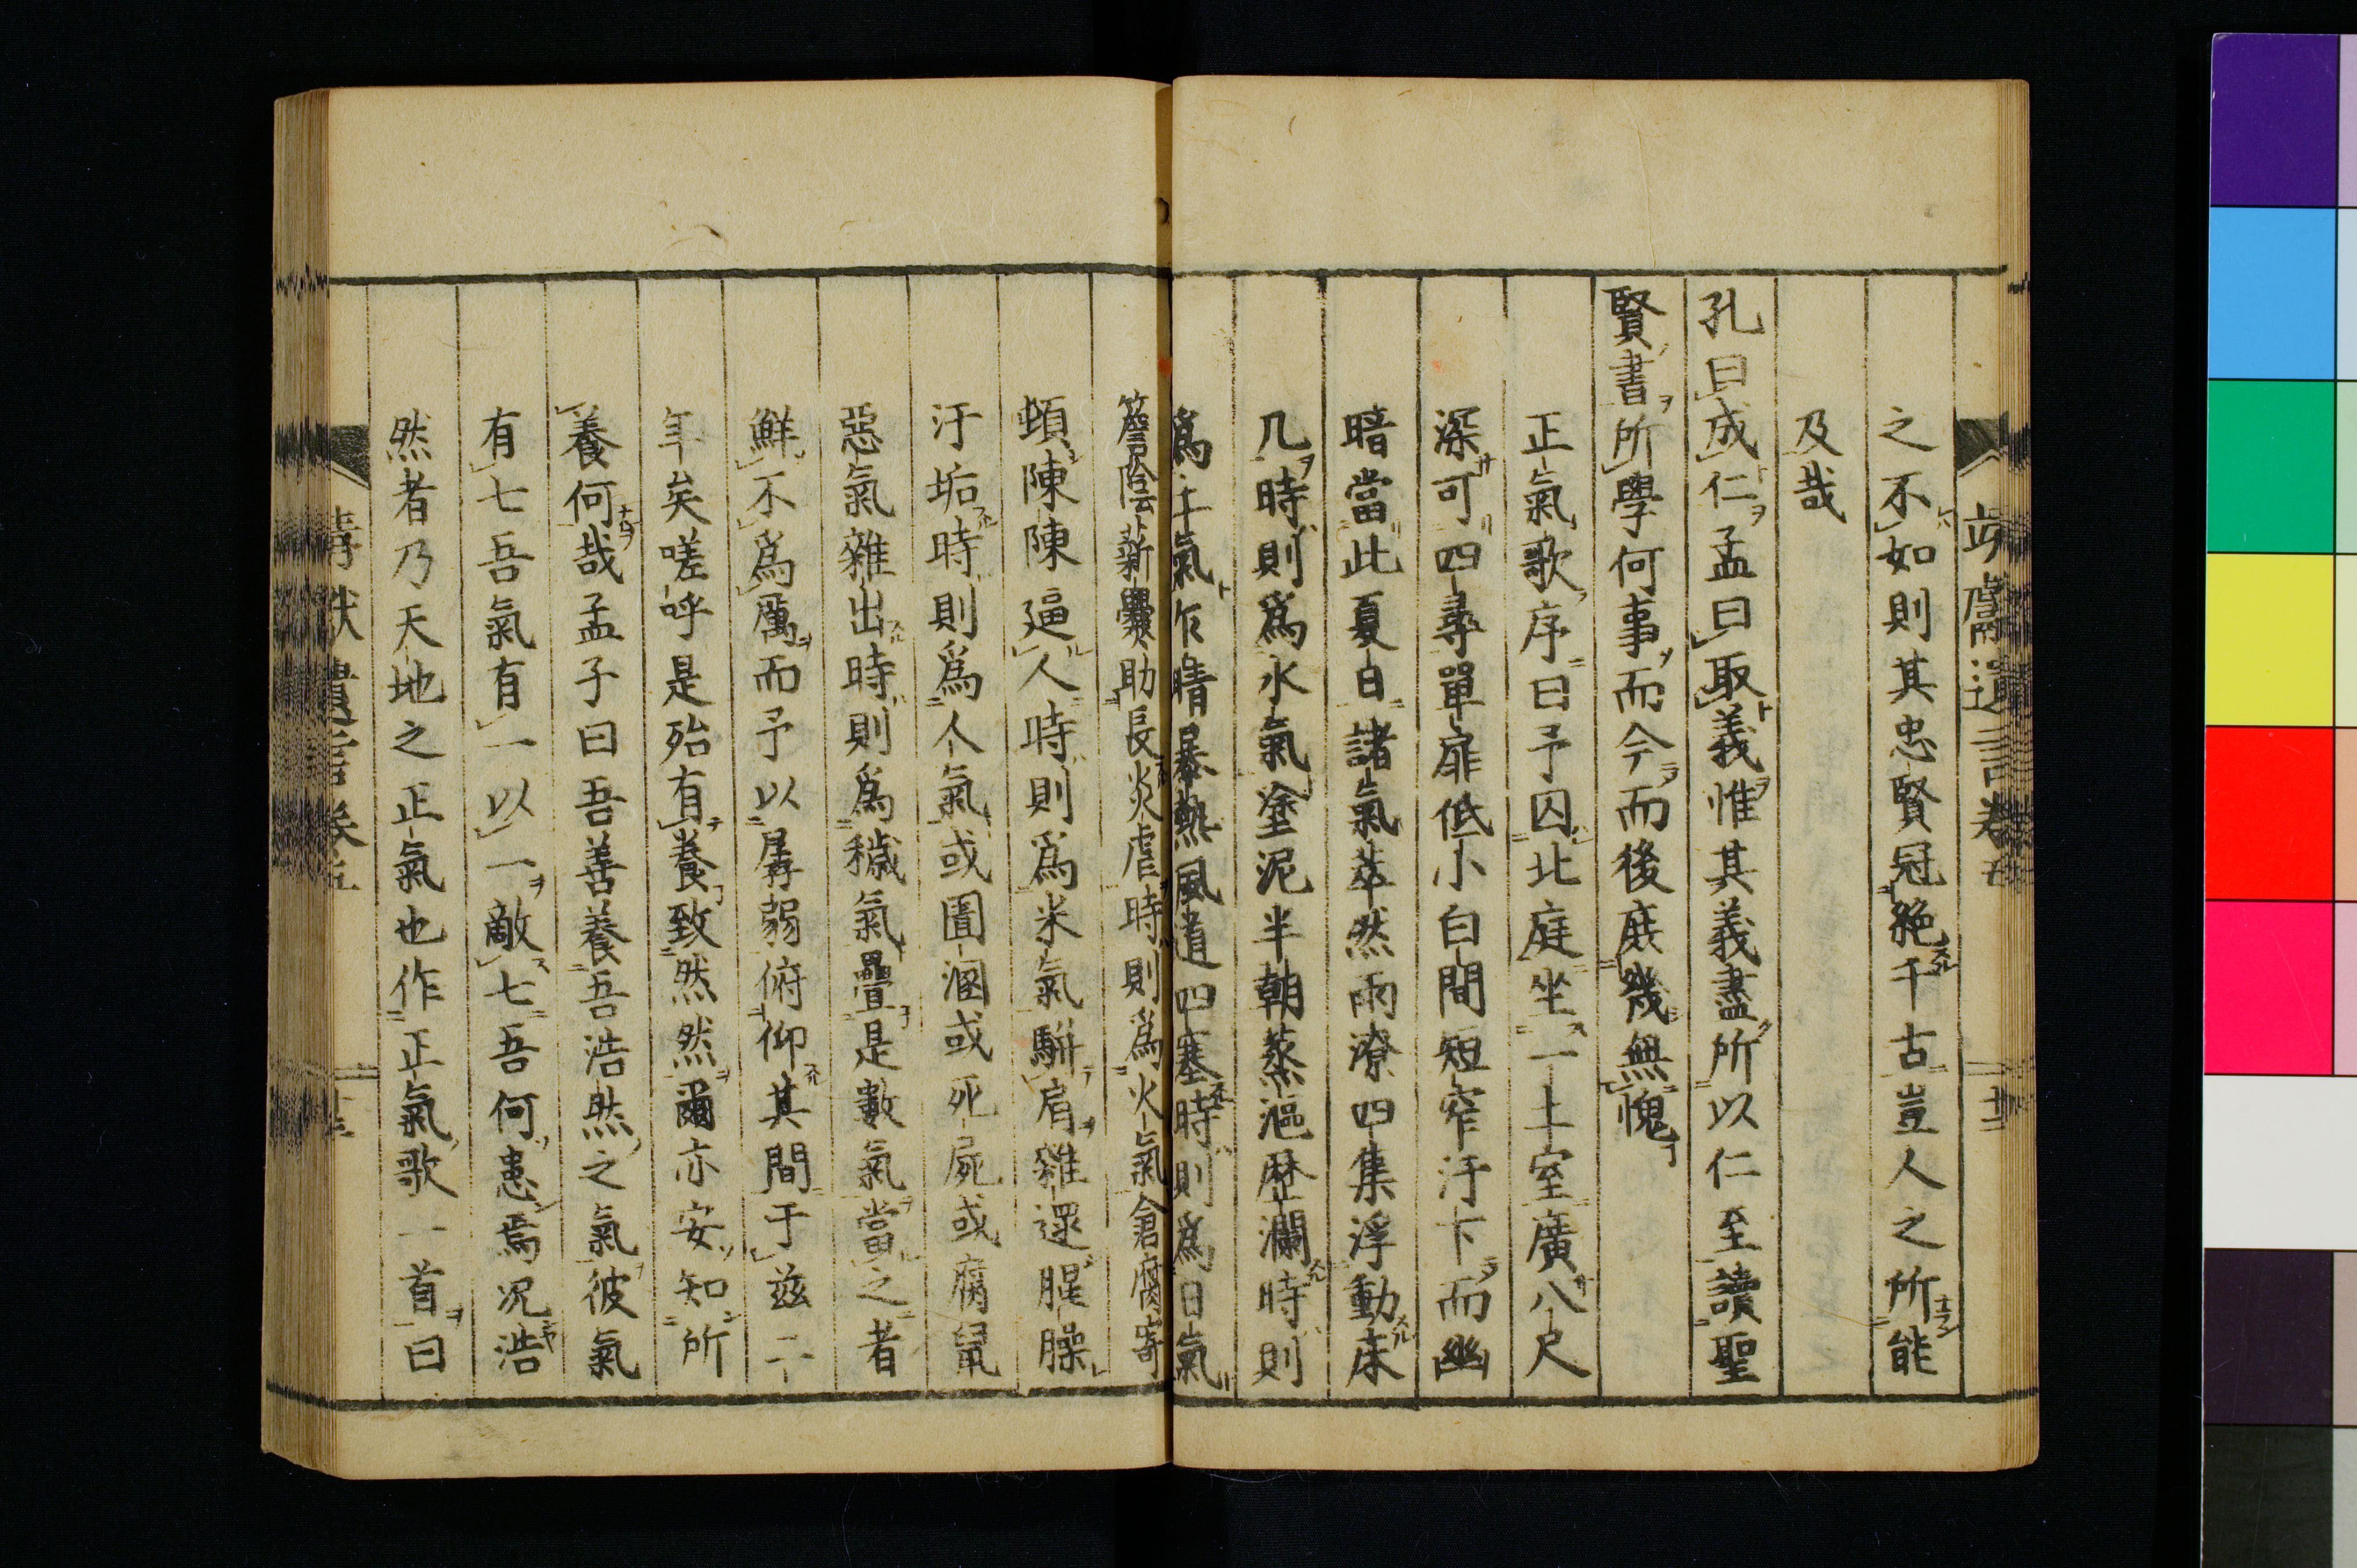 之不如則其忠賢冠絶千古豈人之所能
及哉
孔曰成仁孟曰取義惟其義盡所以仁至讀聖
賢書所學何事而今而後庻幾無愧
正氣歌序曰予囚北庭坐一土室廣八尺
深可四尋單扉低小白間短窄汙下而幽
暗當此夏日諸氣萃然雨潦四集浮動床
几時則爲水氣塗泥半朝蒸漚歴瀾時則
爲土氣乍晴暴熱風道四塞時則爲日氣
簷陰薪爨助長炎虐時則爲火氣倉腐寄
頓陳陳逼人時則爲米氣駢肩雜遝腥臊
汙垢時則爲人氣或圊溷或死屍或腐鼠
惡氣雜出時則爲穢氣疊是數氣當之者
鮮不爲厲而予以孱弱俯仰其間于兹二
年矣嗟呼是殆有養致然然爾亦安知所
養何哉孟子曰吾善養吾浩然之氣彼氣
有七吾氣有一以一敵七吾何患焉况浩
然者乃天地之正氣也作正氣歌一首曰